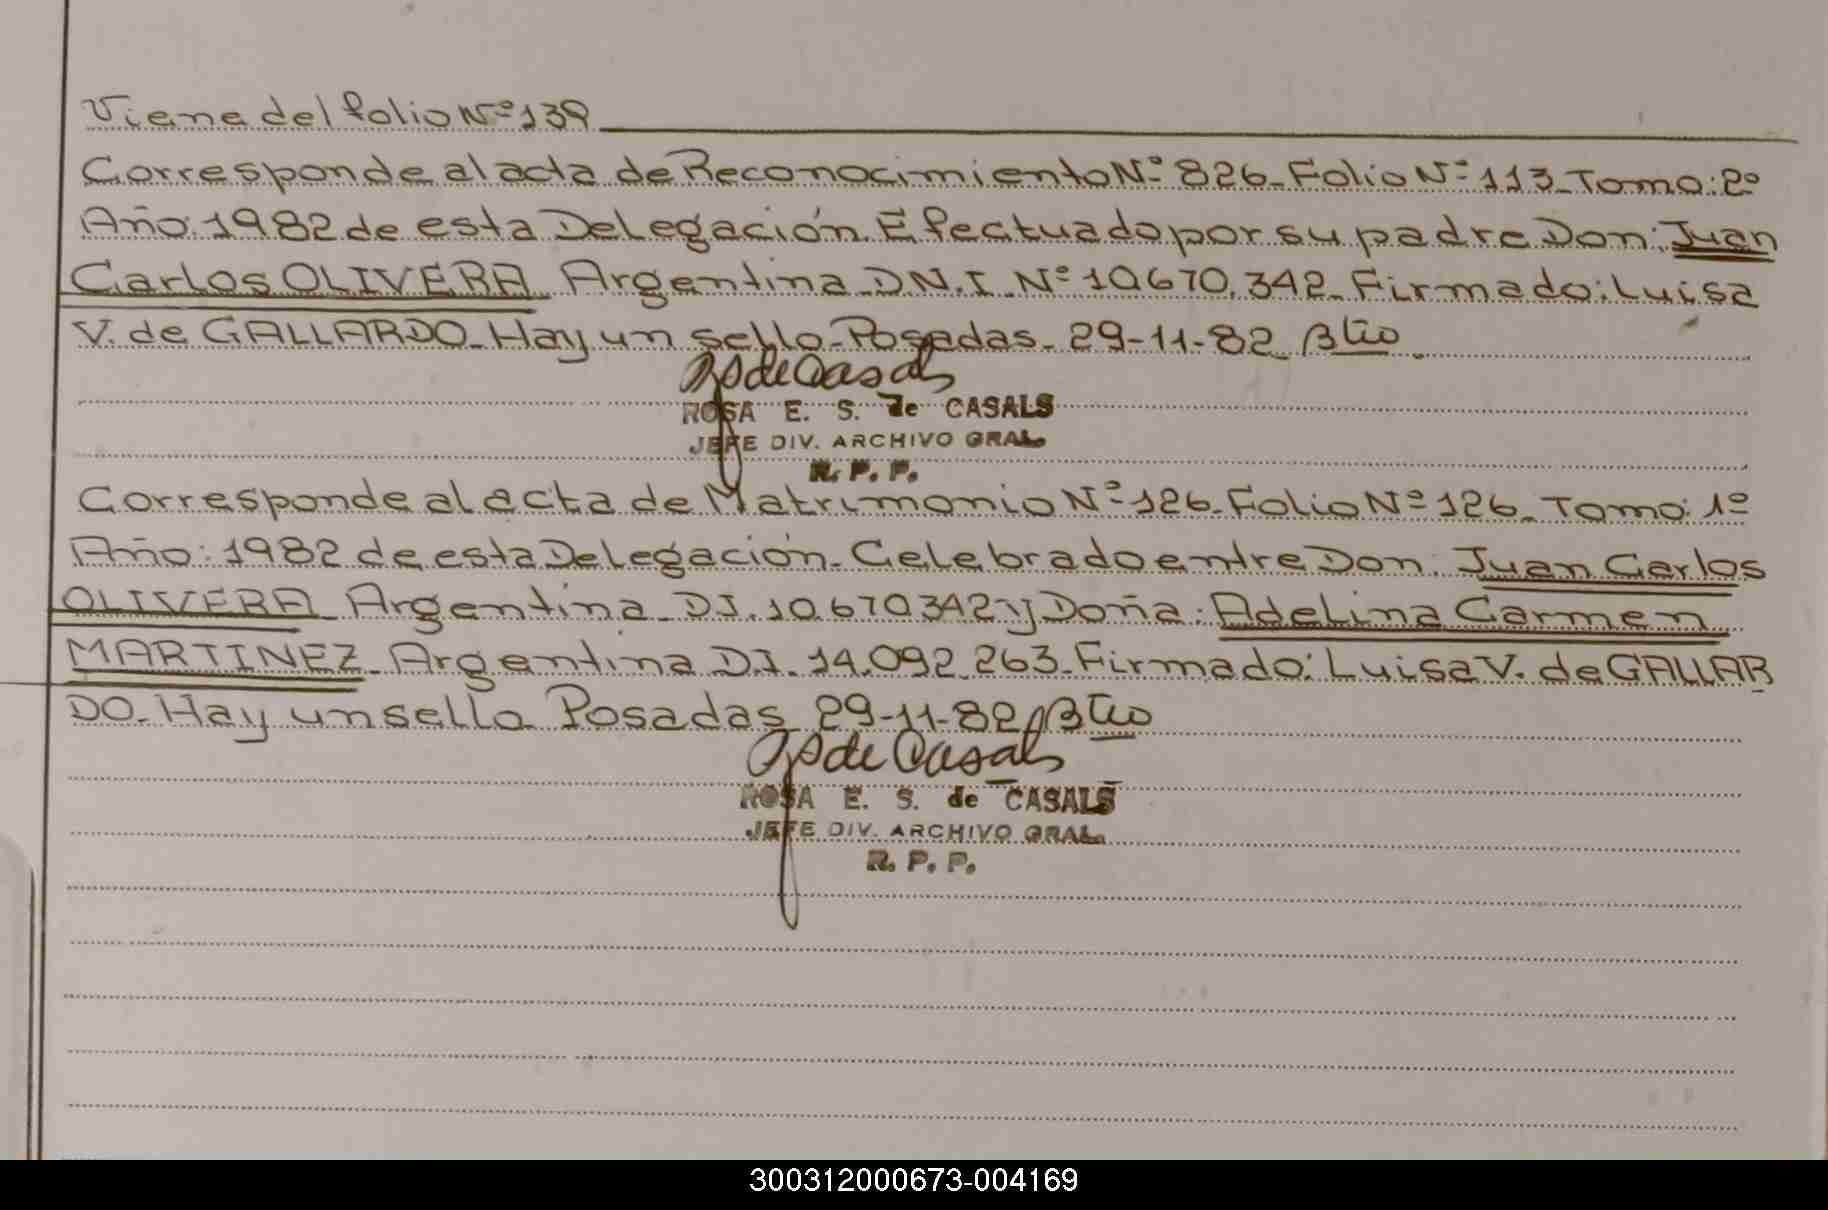 Viene del folio Nº 139
Corresponde al acta de Reconocimiento Nº 826- Folio Nº 113- Tomo: 2º
Año: 1982 de esta Delegación. Efectuado por su padre Don: Juan
Carlos OLIVERA Argentina- D.N.I. Nº 10.670.342- Firmado: Luisa
V. de GALLARDO- Hay un sello- Posadas- 29-11-82
ROSA E. S. de CASALS
JEFE DIV. ARCHIVO GRAL.
R. P. P.
Corresponde al acta de Matrimonio Nº 126- Folio Nº 126- Tomo: 1º
Año: 1982 de esta Delegación- Celebrado entre Don: Juan Carlos
OLIVERA Argentina- D.I. 10.670.342 y Doña: Adelina Carmen
MARTINEZ- Argentina D.I. 14.092.263- Firmado: Luisa V. de GALLAR
DO- Hay un sello Posadas 29-11-82
ROSA E. S. de CASALS
JEFE DIV. ARCHIVO GRAL.
R. P. P.
300312000673-004169